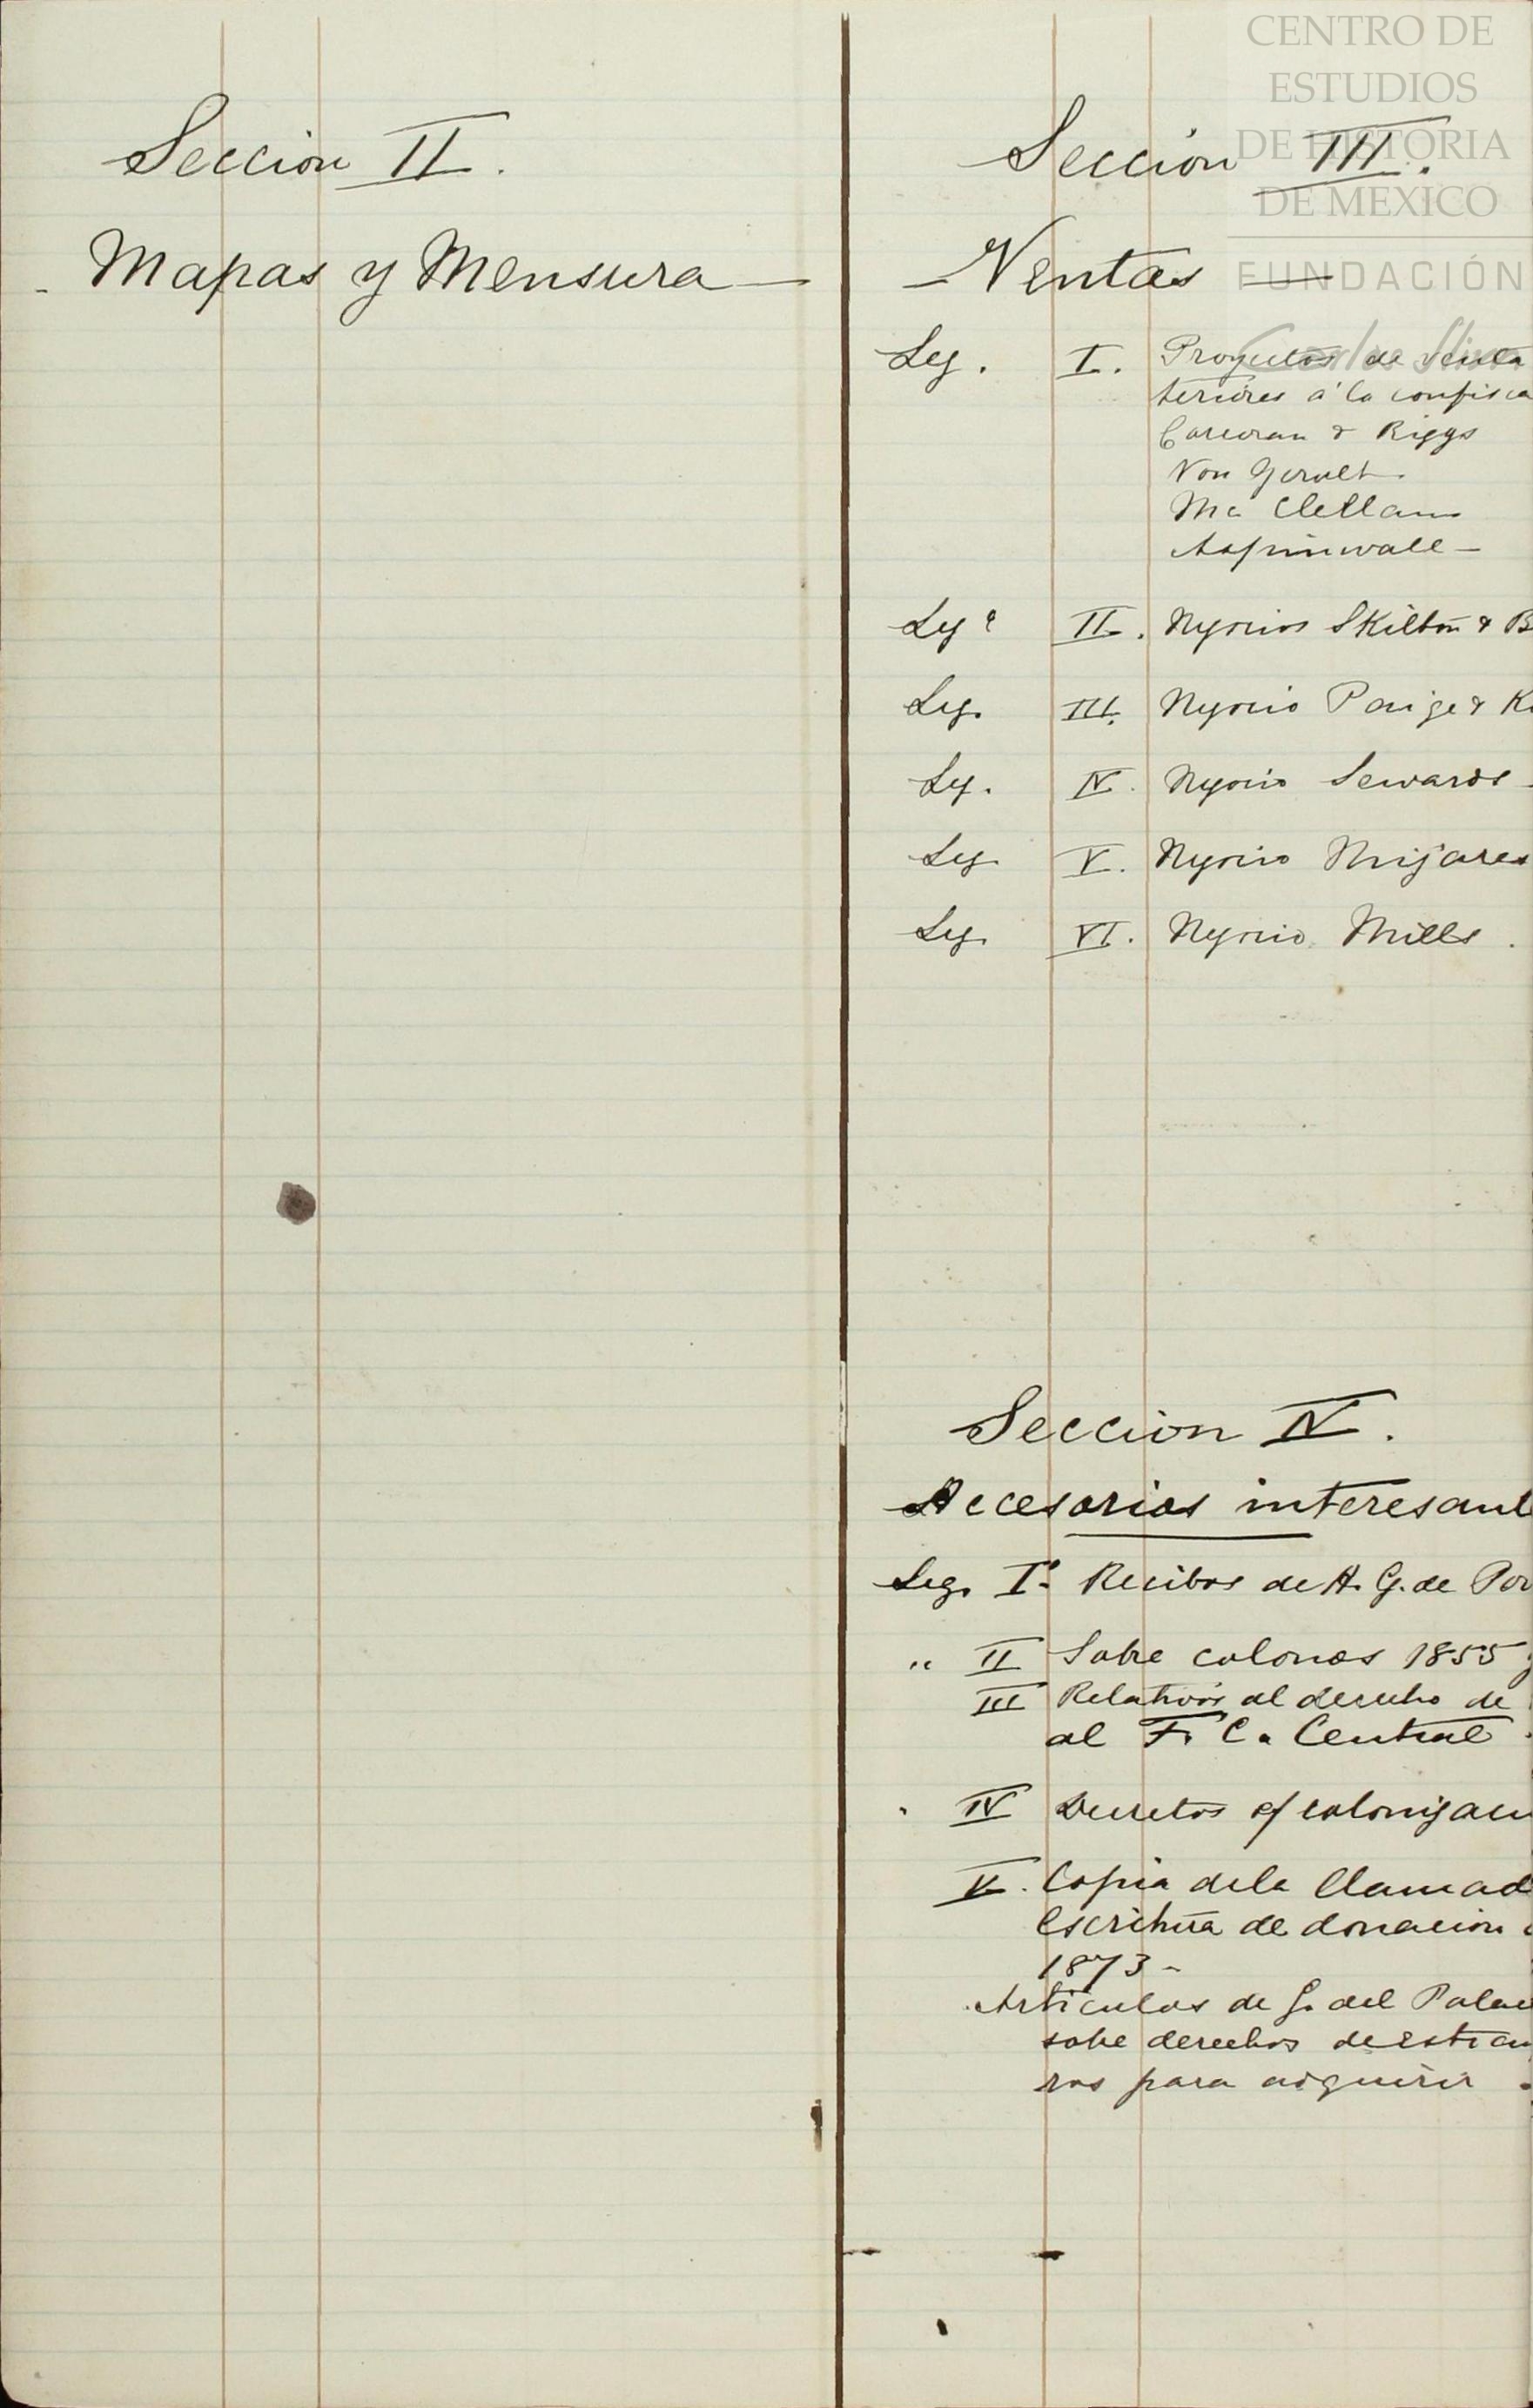 Seccion II.
Mapas y Mensura —
CENTRO DE
ESTUDIOS
DE HISTORIA
DE MEXICO
FUNDACIÓN
Carlos Slim
Sección III.
— Ventas —
Leg. I. Proyectos de venta
teriores á la confisca
Corcoran & Riggs
Von Gerolt
Mc Clellan
Aspinwall —
Leg. II. Negocios Skilton & B
Leg. III. Negocio Paige & K
Leg. IV. Negocio Sewards —
Leg. V. Negocio Mijares
Leg. VI. Negocio Mills.
Seccion IV.
Accesorios interesant
Leg. I. Recibos de A. G. de Por
" II Sobre colonos 1855 y
III Relativos al derecho de
al F. C. Central.
" IV Decretos s/ colonizaci
V. Copia de la llamad
escritura de donacion
1873 -
Articulos de G. del Palac
sobre derechos de estran
ros para adquirir.